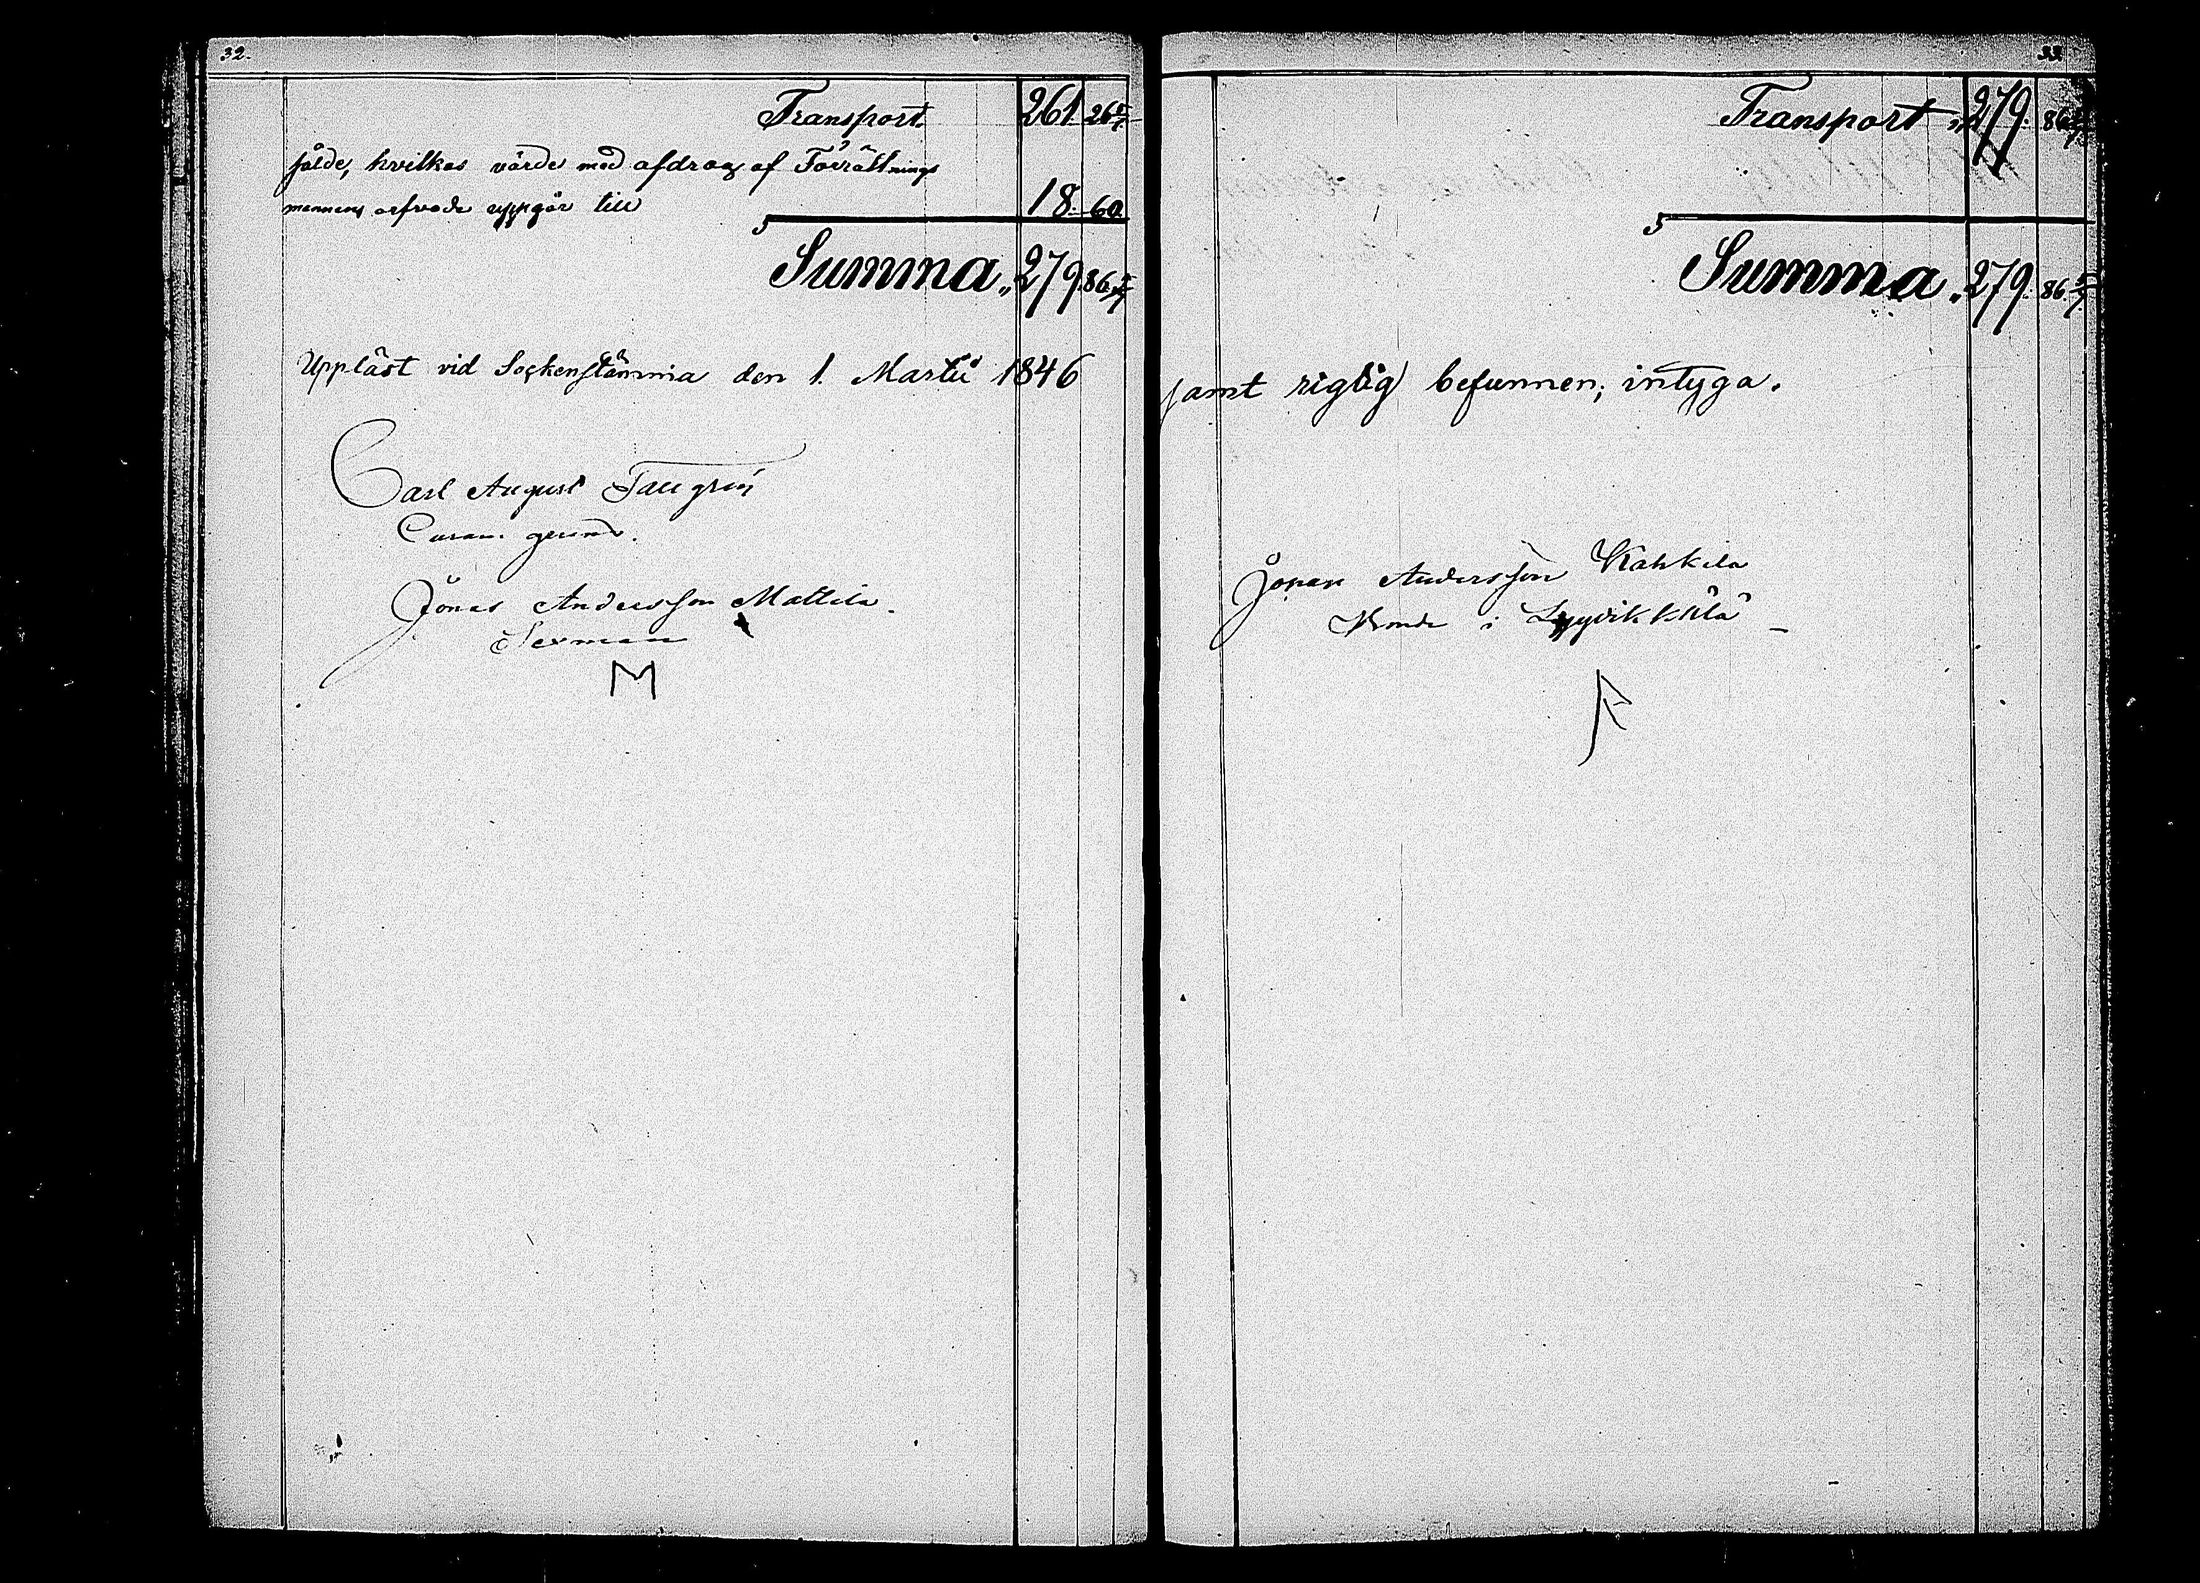 32.
Transport. 261 26 5/7
sålde, hvilkas värde med afdrag af Förrättnings
mannens arfvode uppgår till 18. 60.
Summa „ 279. 86 5/7
Uppläst vid Sockenstämma den 1. Martii 1846
Carl August
Curam gerens.
Jonas Andersson Mattila.
Sexman
M
33.
Transport „ 279. 86 5/7
Summa „ 279. 86. 5/7
samt rigtig befunnen; intyga.
Jonas Andersson Kahkila
Bonde i